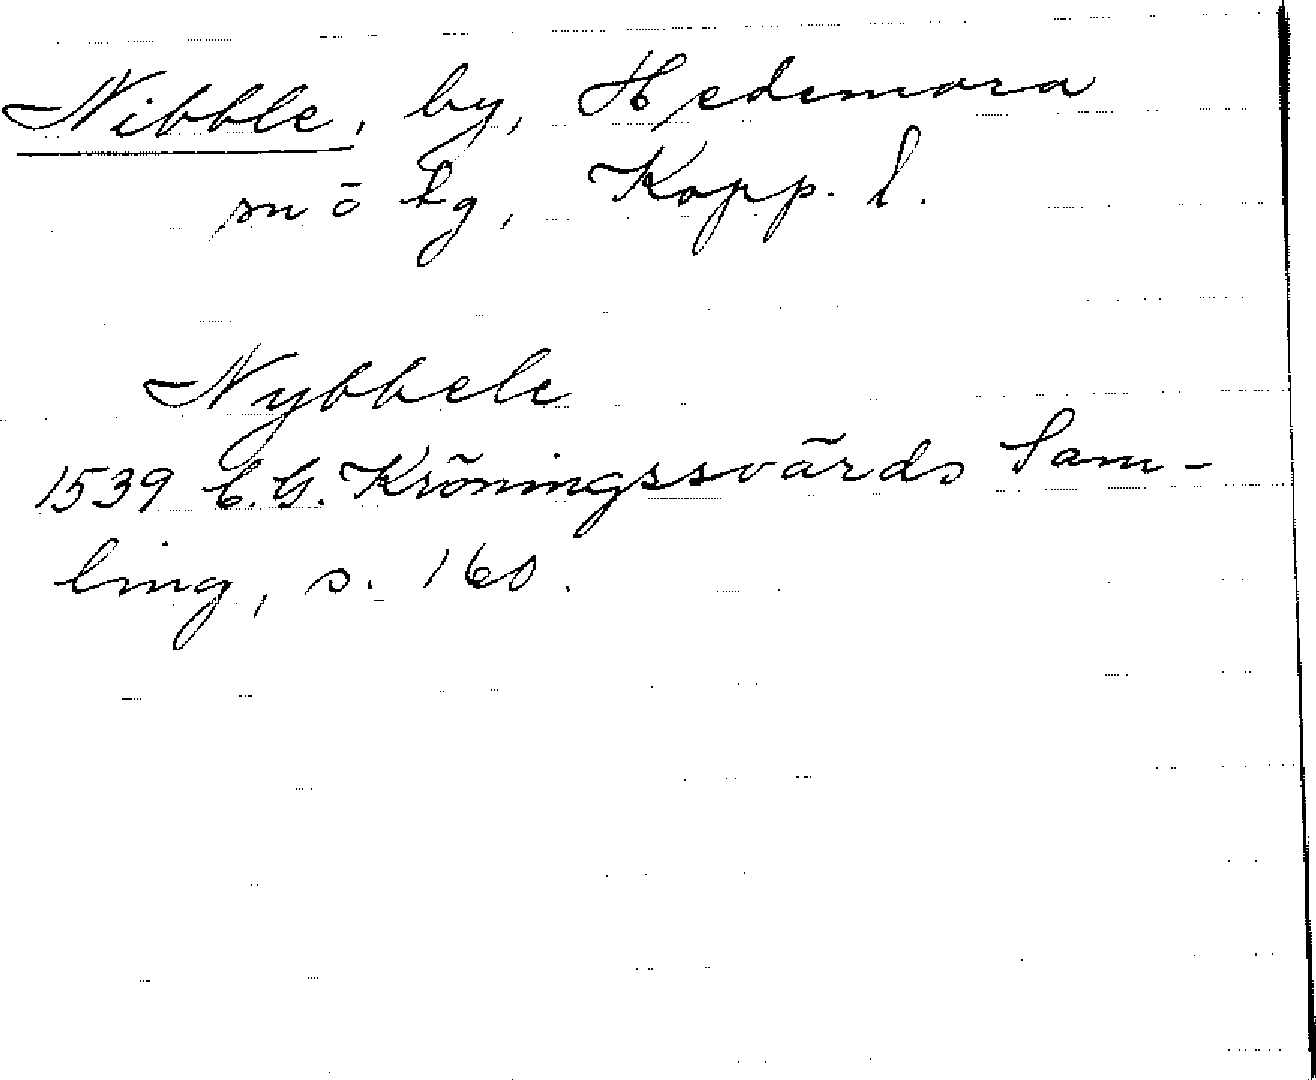 Nibble, by, Hedemora
sn o tg, Kopp. l.
Nybbele
1539 C.G. Kröningssvärds Sam-
ling, s. 160.